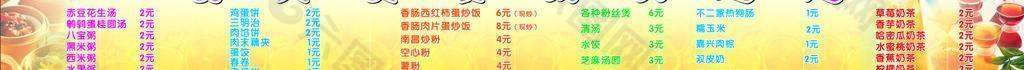 赤豆花生汤 2元
鹌鹑蛋桂圆汤 2元
八宝粥 2元
黑米粥 2元
西米粥 2元
鸡蛋饼 2元
三明治 2元
肉馅饼 2元
肉末藕夹 1元
蛋饺 1元
春卷 1元
香肠西红柿蛋炒饭 6元(现炒)
香肠肉片蛋炒饭 8元(现炒)
南昌炒粉 4元
空心粉 4元
薯粉 4元
各种粉丝煲 6元
清汤 3元
水饺 3元
芝麻汤圆 3元
不二家热狗肠 1元
糯玉米 2元
嘉兴肉棕 1元
双皮奶 2元
草莓奶茶 2元
香芋奶茶 2元
哈密瓜奶茶 2元
水蜜桃奶茶 2元
香蕉奶茶 2元